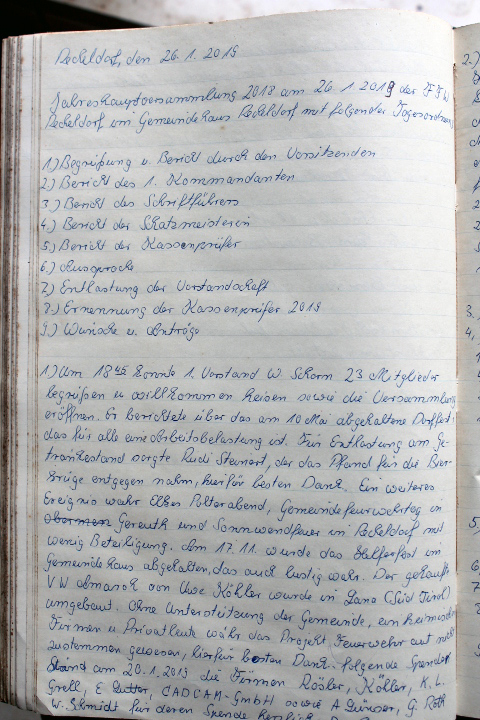 Peckeldorf, den 26.1.2019
Jahreshauptversammlung 2018 am 26.1.2019 der FFW
Peckeldorf im Gemeindehaus Peckeldorf mit folgender Tagesordnung
1.) Begrüßung u. Bericht durch den Vorsitzenden
2.) Bericht des 1. Kommandanten
3.) Bericht des Schriftführers
4.) Bericht der Schatzmeisterin
5.) Bericht der Kassenprüfer
6.) Aussprache
7.) Entlastung der Vorstandschaft
8.) Ernennung der Kassenprüfer 2019
9.) Wünsche u. Anträge
1.) Um 18 45 konnte 1. Vorstand W. Schorn 23 Mitglieder
begrüßen u willkommen heisen sowie die Versammlung
eröffnen. Er berichtete über das am 10 Mai abgehaltene Dorffest
das für alle eine Arbeitsbelastung ist. Für Entlastung am Ge-
tränkestand sorgte Rudi Steinert, der das Pfand für die Bier-
krüge entgegen nahm, hierfür besten Dank. Ein weiteres
Ereignis wahr Polterabend, Gemeindefeuerwehrtag in
Gereuth und Sonnwendfeuer in Peckeldorf mit
wenig Beteiligung. Am 17.11. wurde das Helferfest im
Gemeindehaus abgehalten, das auch lustig wahr. Der gekaufte
VW Amarok von Uwe Köhler wurde in Lana (Süd Tirol)
umgebaut. Ohne Unterstützung der Gemeinde, ein heimischen
Firmen u Privatleute währ das Projekt Feuerwehrauto nicht
zustammen gewesen, hierfür besten Dank. folgende Spender
am 20.1.2019 die Firmen Rösler, Köhler, K. L.
Grell, E Sutter, CADCAM-GmbH sowie A G. Roth
W. Schmidt für deren Spende herzlich